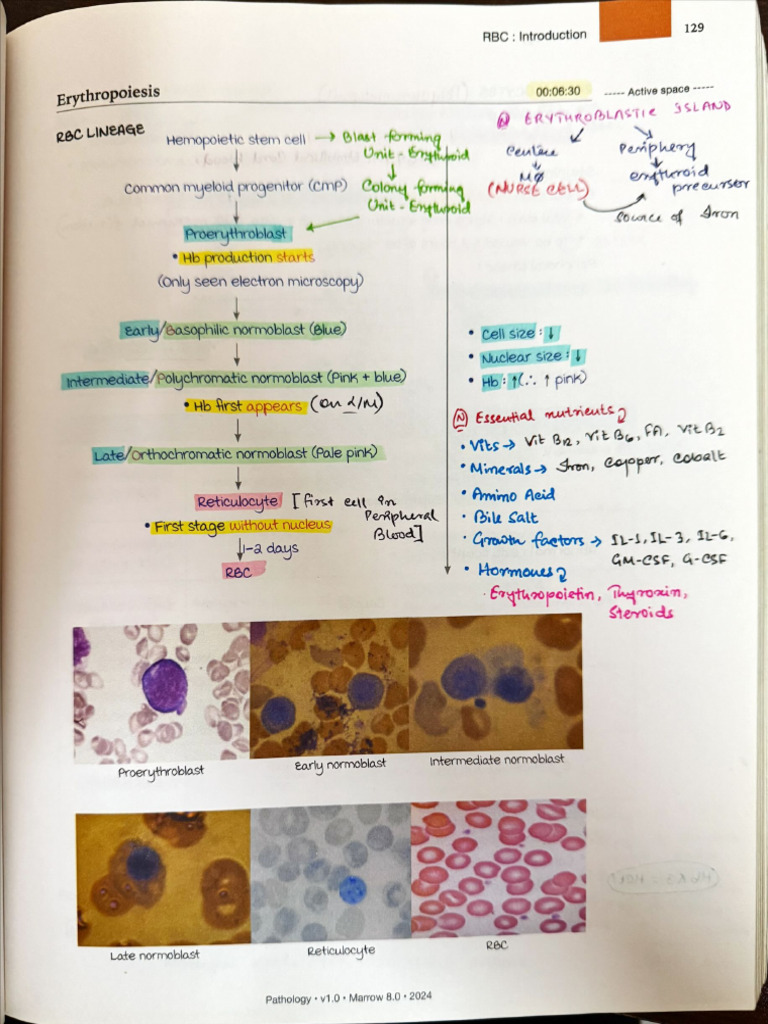 RBC : Introduction
129
Erythropoiesis
00:06:30
----- Active space -----
RBC LINEAGE
Hemopoietic stem cell → Blast forming
Unit - Erythroid
↓
Common myeloid progenitor (CMP)
Colony forming
Unit - Erythroid
↓
Proerythroblast
• Hb production starts
(Only seen electron microscopy)
↓
Early/Basophilic normoblast (Blue)
↓
Intermediate/Polychromatic normoblast (Pink + blue)
• Hb first appears (on L/M)
↓
Late/Orthochromatic normoblast (Pale pink)
↓
Reticulocyte [first cell in
Peripheral
Blood]
• First stage without nucleus
↓ 1-2 days
RBC
(N) ERYTHROBLASTIC ISLAND
Periphery
↓
erythroid
precursor
MØ
(NURSE CELL)
source of Iron
• Cell size : ↓
• Nuclear size : ↓
• Hb : ↑(∴ ↑ pink)
(N) Essential nutrients
• Vits → Vit B12, Vit B6, FA, Vit B2
• Minerals → Iron, Copper, Cobalt
• Amino Acid
• Bile Salt
• Growth factors → IL-1, IL-3, IL-6,
GM-CSF, G-CSF
• Hormones
· Erythropoietin, Thyroxin,
Steroids
Proerythroblast
Early normoblast
Intermediate normoblast
Late normoblast
Reticulocyte
RBC
Pathology • v1.0 • Marrow 8.0 • 2024